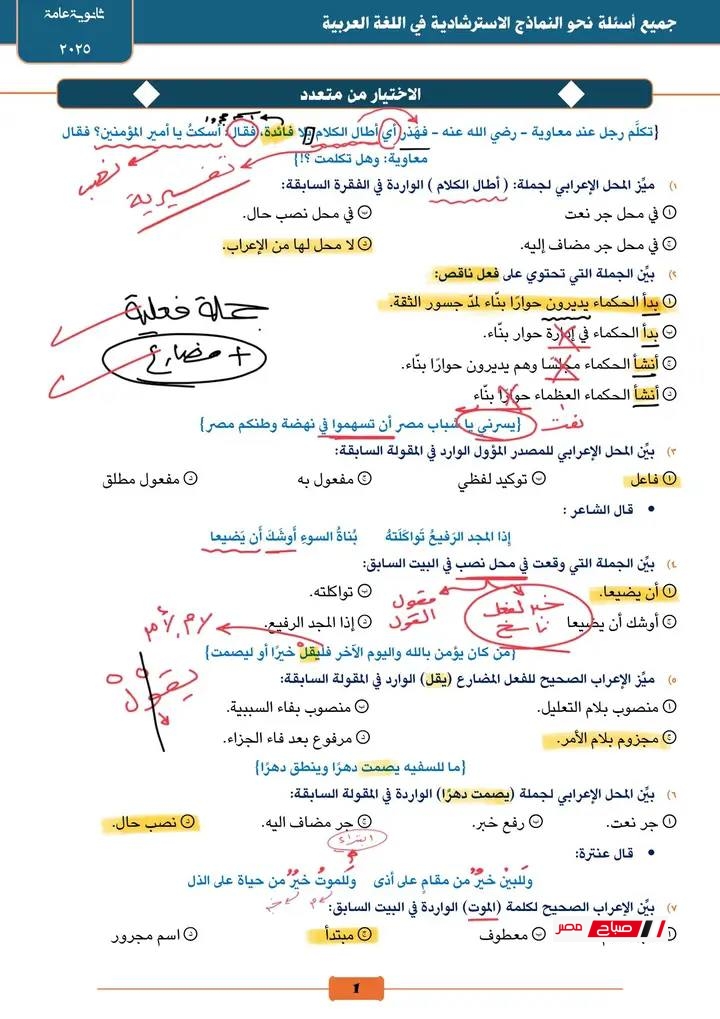 جميع أسئلة نحو النماذج الاسترشادية في اللغة العربية
ثانوية عامة
٢٠٢٥
الاختيار من متعدد
{تكلَّم رجل عند معاوية - رضي الله عنه - فهَذر أي أطال الكلام بلا فائدة، فقال: أسكتُ يا أمير المؤمنين؟ فقال
معاوية: وهل تكلمت ؟!}
نصب
تفسيرية
١) ميِّز المحل الإعرابي لجملة: ( أطال الكلام ) الواردة في الفقرة السابقة:
أ في محل جر نعت
ب في محل نصب حال.
ج في محل جر مضاف إليه.
د لا محل لها من الإعراب.
٢) بيِّن الجملة التي تحتوي على فعل ناقص:
أ بدأ الحكماء يديرون حوارًا بنّاء لمدّ جسور الثقة.
ب بدأ الحكماء في إدارة حوار بنّاء.
ج أنشأ الحكماء مجلسًا وهم يديرون حوارًا بنّاء.
د أنشأ الحكماء العظماء حوارًا بنّاء
جملة فعلية
+ مضارع
نعت
{يسرني يا شباب مصر أن تسهموا في نهضة وطنكم مصر}
٣) بيِّن المحل الإعرابي للمصدر المؤول الوارد في المقولة السابقة:
أ فاعل
ب توكيد لفظي
ج مفعول به
د مفعول مطلق
• قال الشاعر :
إِذا المجد الرَفيعُ تَواكَلَتهُ بُناةُ السوءِ أَوشَكَ أَن يَضيعا
٤) بيِّن الجملة التي وقعت في محل نصب في البيت السابق:
أ أن يضيعا.
ب تواكلته.
ج أوشك أن يضيعا
د إذا المجد الرفيع.
خبر لفعل
ناسخ
مقول
القول
لام الأمر
{من كان يؤمن بالله واليوم الآخر فليقلْ خيرًا أو ليصمت}
يقول
٥) ميِّز الإعراب الصحيح للفعل المضارع (يقل) الوارد في المقولة السابقة:
أ منصوب بلام التعليل.
ب منصوب بفاء السببية.
ج مجزوم بلام الأمر.
د مرفوع بعد فاء الجزاء.
{ما للسفيه يصمت دهرًا وينطق دهرًا}
٦) بيِّن المحل الإعرابي لجملة (يصمت دهرًا) الواردة في المقولة السابقة:
أ جر نعت.
ب رفع خبر.
ج جر مضاف اليه.
د نصب حال.
• قال عنترة:
وَللبينْ خيرٌ من مقامِ على أذى وَللموتُ خيرٌ من حياة على الذل
٧) بيِّن الإعراب الصحيح لكلمة (الموت) الواردة في البيت السابق:
ب معطوف
ج مبتدأ
د اسم مجرور
صباح مصر
1